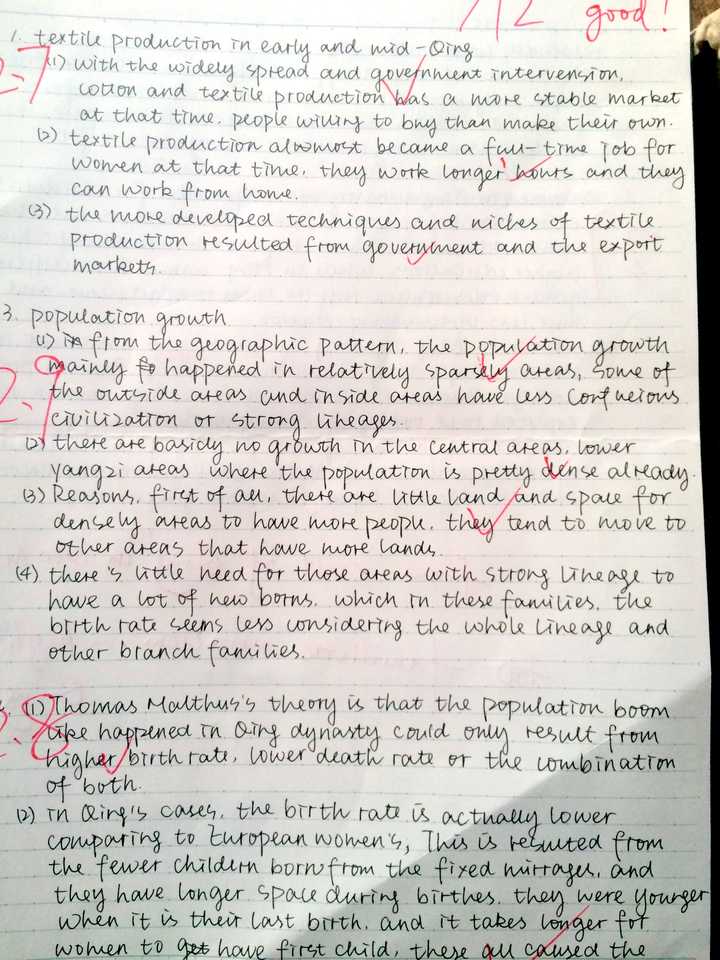 12 good!
1. textile production in early and mid-Qing
2.7
(1) with the widely spread and government intervension,
cotton and textile production has a more stable market
at that time. people willing to buy than make their own.
(2) textile production alwmost became a full-time job for
women at that time, they work longer hours and they
can work from home.
(3) the more developed techniques and niches of textile
production resulted from government and the export
markets.
3. population growth
2.9
(1) from the geographic pattern, the population growth
mainly happened in relatively sparsely areas, some of
the outside areas and inside areas have less Confucious
civilization or strong lineages.
(2) there are basicly no growth in the central areas, lower
yangzi areas where the population is pretty dense already.
(3) Reasons, first of all, there are little land and space for
densely areas to have more people. they tend to move to
other areas that have more lands.
(4) there's little need for those areas with strong lineage to
have a lot of new borns. which in these families, the
birth rate seems less considering the whole lineage and
other branch families.
.8
(1) Thomas Malthus's theory is that the population boom
like happened in Qing dynasty could only result from
higher birth rate, lower death rate or the combination
of both.
(2) in Qing's cases, the birth rate is actually lower
comparing to European women's, This is resulted from
the fewer childern born from the fixed mirrages, and
they have longer space during birthes. they were younger
when it is their last birth. and it takes longer for
women to get have first child, these all caused the